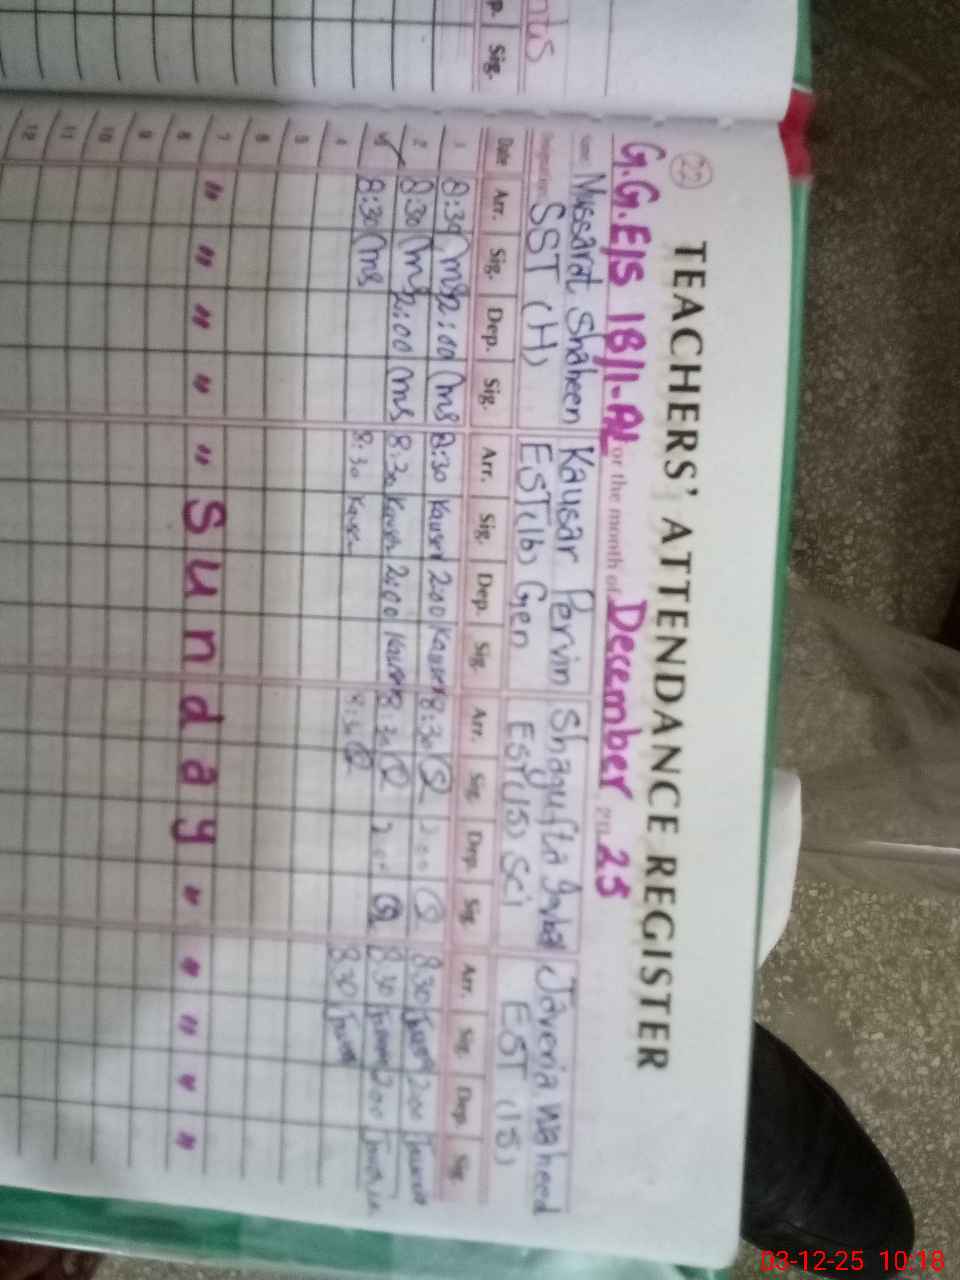 ntus
p. Sig.
22
TEACHERS' ATTENDANCE REGISTER
G.G.E/S 18/1-AL for the month of December 2025
Name Mussarat Shaheen Kausar Pervin Shagufta Javeria Waheed
Designation SST (H) EST(16) Gen EST(15) Sci EST (15)
Date Arr. Sig. Dep. Sig. Arr. Sig. Dep. Sig. Arr. Sig. Dep. Sig. Arr. Sig. Dep. Sig.
1 8:30 ms 2:00 ms 8:30 Kauser 2:00 Kauser 8:30 2:00 8:30 2:00
2 8:30 ms 2:00 ms 8:30 Kauser 2:00 Kauser 8:30 2:00 8:30 2:00
8:30 ms 8:30 Kauser 8:30 8:30
4
5
6
7 " " " " " Sunday " " " " "
8
9
10
11
12
03-12-25 10:18